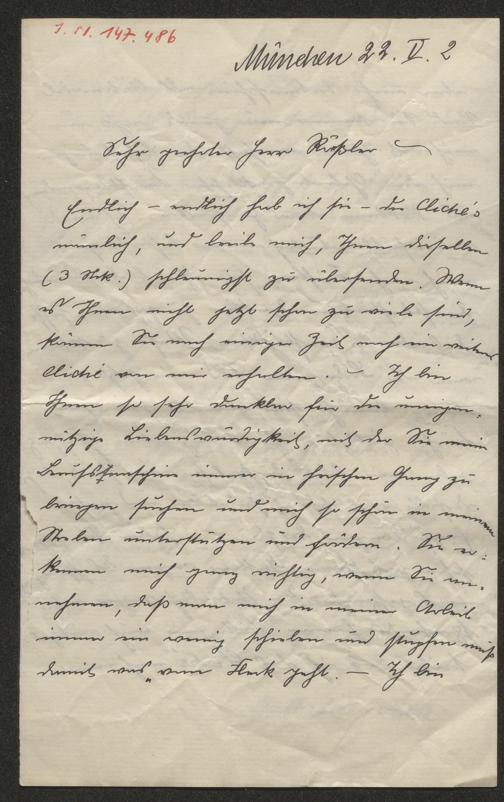 J. N. 147.486
München 22. V. 2
Sehr geehrter Herr Rößler
Endlich – endlich hab ich sie – die Cliché's
nämlich, und beeile mich, Ihnen dieselben
(3 Stk.) schleunigst zu übersenden. Wenn
es Ihnen nicht jetzt schon zu viele sind,
können Sie nach einiger Zeit noch ein weiteres
Cliché von mir erhalten. – Ich bin
Ihnen so sehr dankbar für die uneigen-
nützige Liebenswürdigkeit, mit der Sie mein
immer in hübschen Gang zu
bringen suchen und mich so schön in meinem
Streben unterstützen und fördern. Sie er-
kennen mich ganz richtig, wenn Sie an-
nehmen, daß man mich in meiner Arbeit
immer ein wenig schieben und stupfen muß
damit was vom Fleck geht. – Ich bin